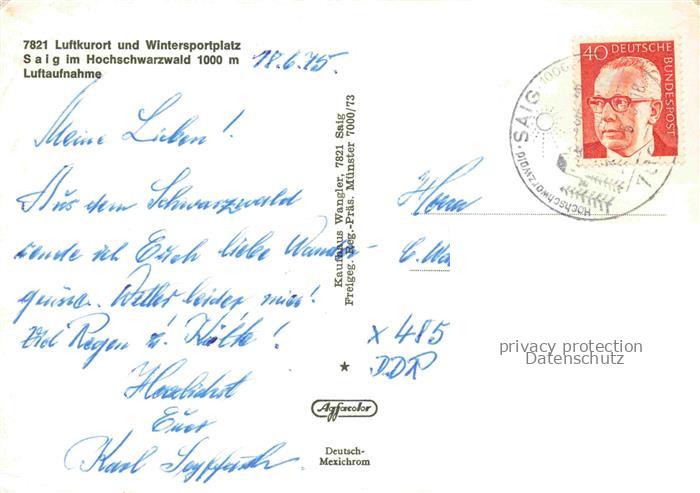 7821 Luftkurort und Wintersportplatz
Saig im Hochschwarzwald 1000 m
Luftaufnahme
18.6.75.
Meine Lieben!
Aus dem Schwarzwald
sende ich Euch liebe Wander-
grüsse. Wetter leider mies!
Viel Regen u. Kälte!
Herzlichst
Euer
Karl Seyffarth
Kaufhaus Wangler, 7821 Saig
Freigeg. Reg.-Präs. Münster 7000/73
Agfacolor
Deutsch-
Mexichrom
40 DEUTSCHE
BUNDESPOST
SAIG
Hochschwarzwald
Herrn
x 485
DDR
privacy protection
Datenschutz